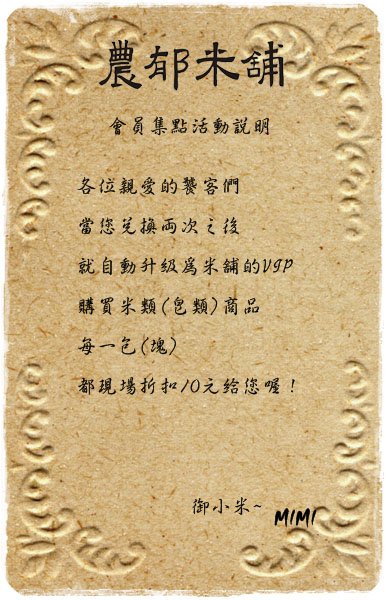 農郁米舖
會員集點活動說明
各位親愛的饕客們
當您兌換兩次之後
就自動升級為米舖的VIP
購買米類(皂類)商品
每一包(塊)
都現場折扣10元給您喔！
御小米~ MIMI